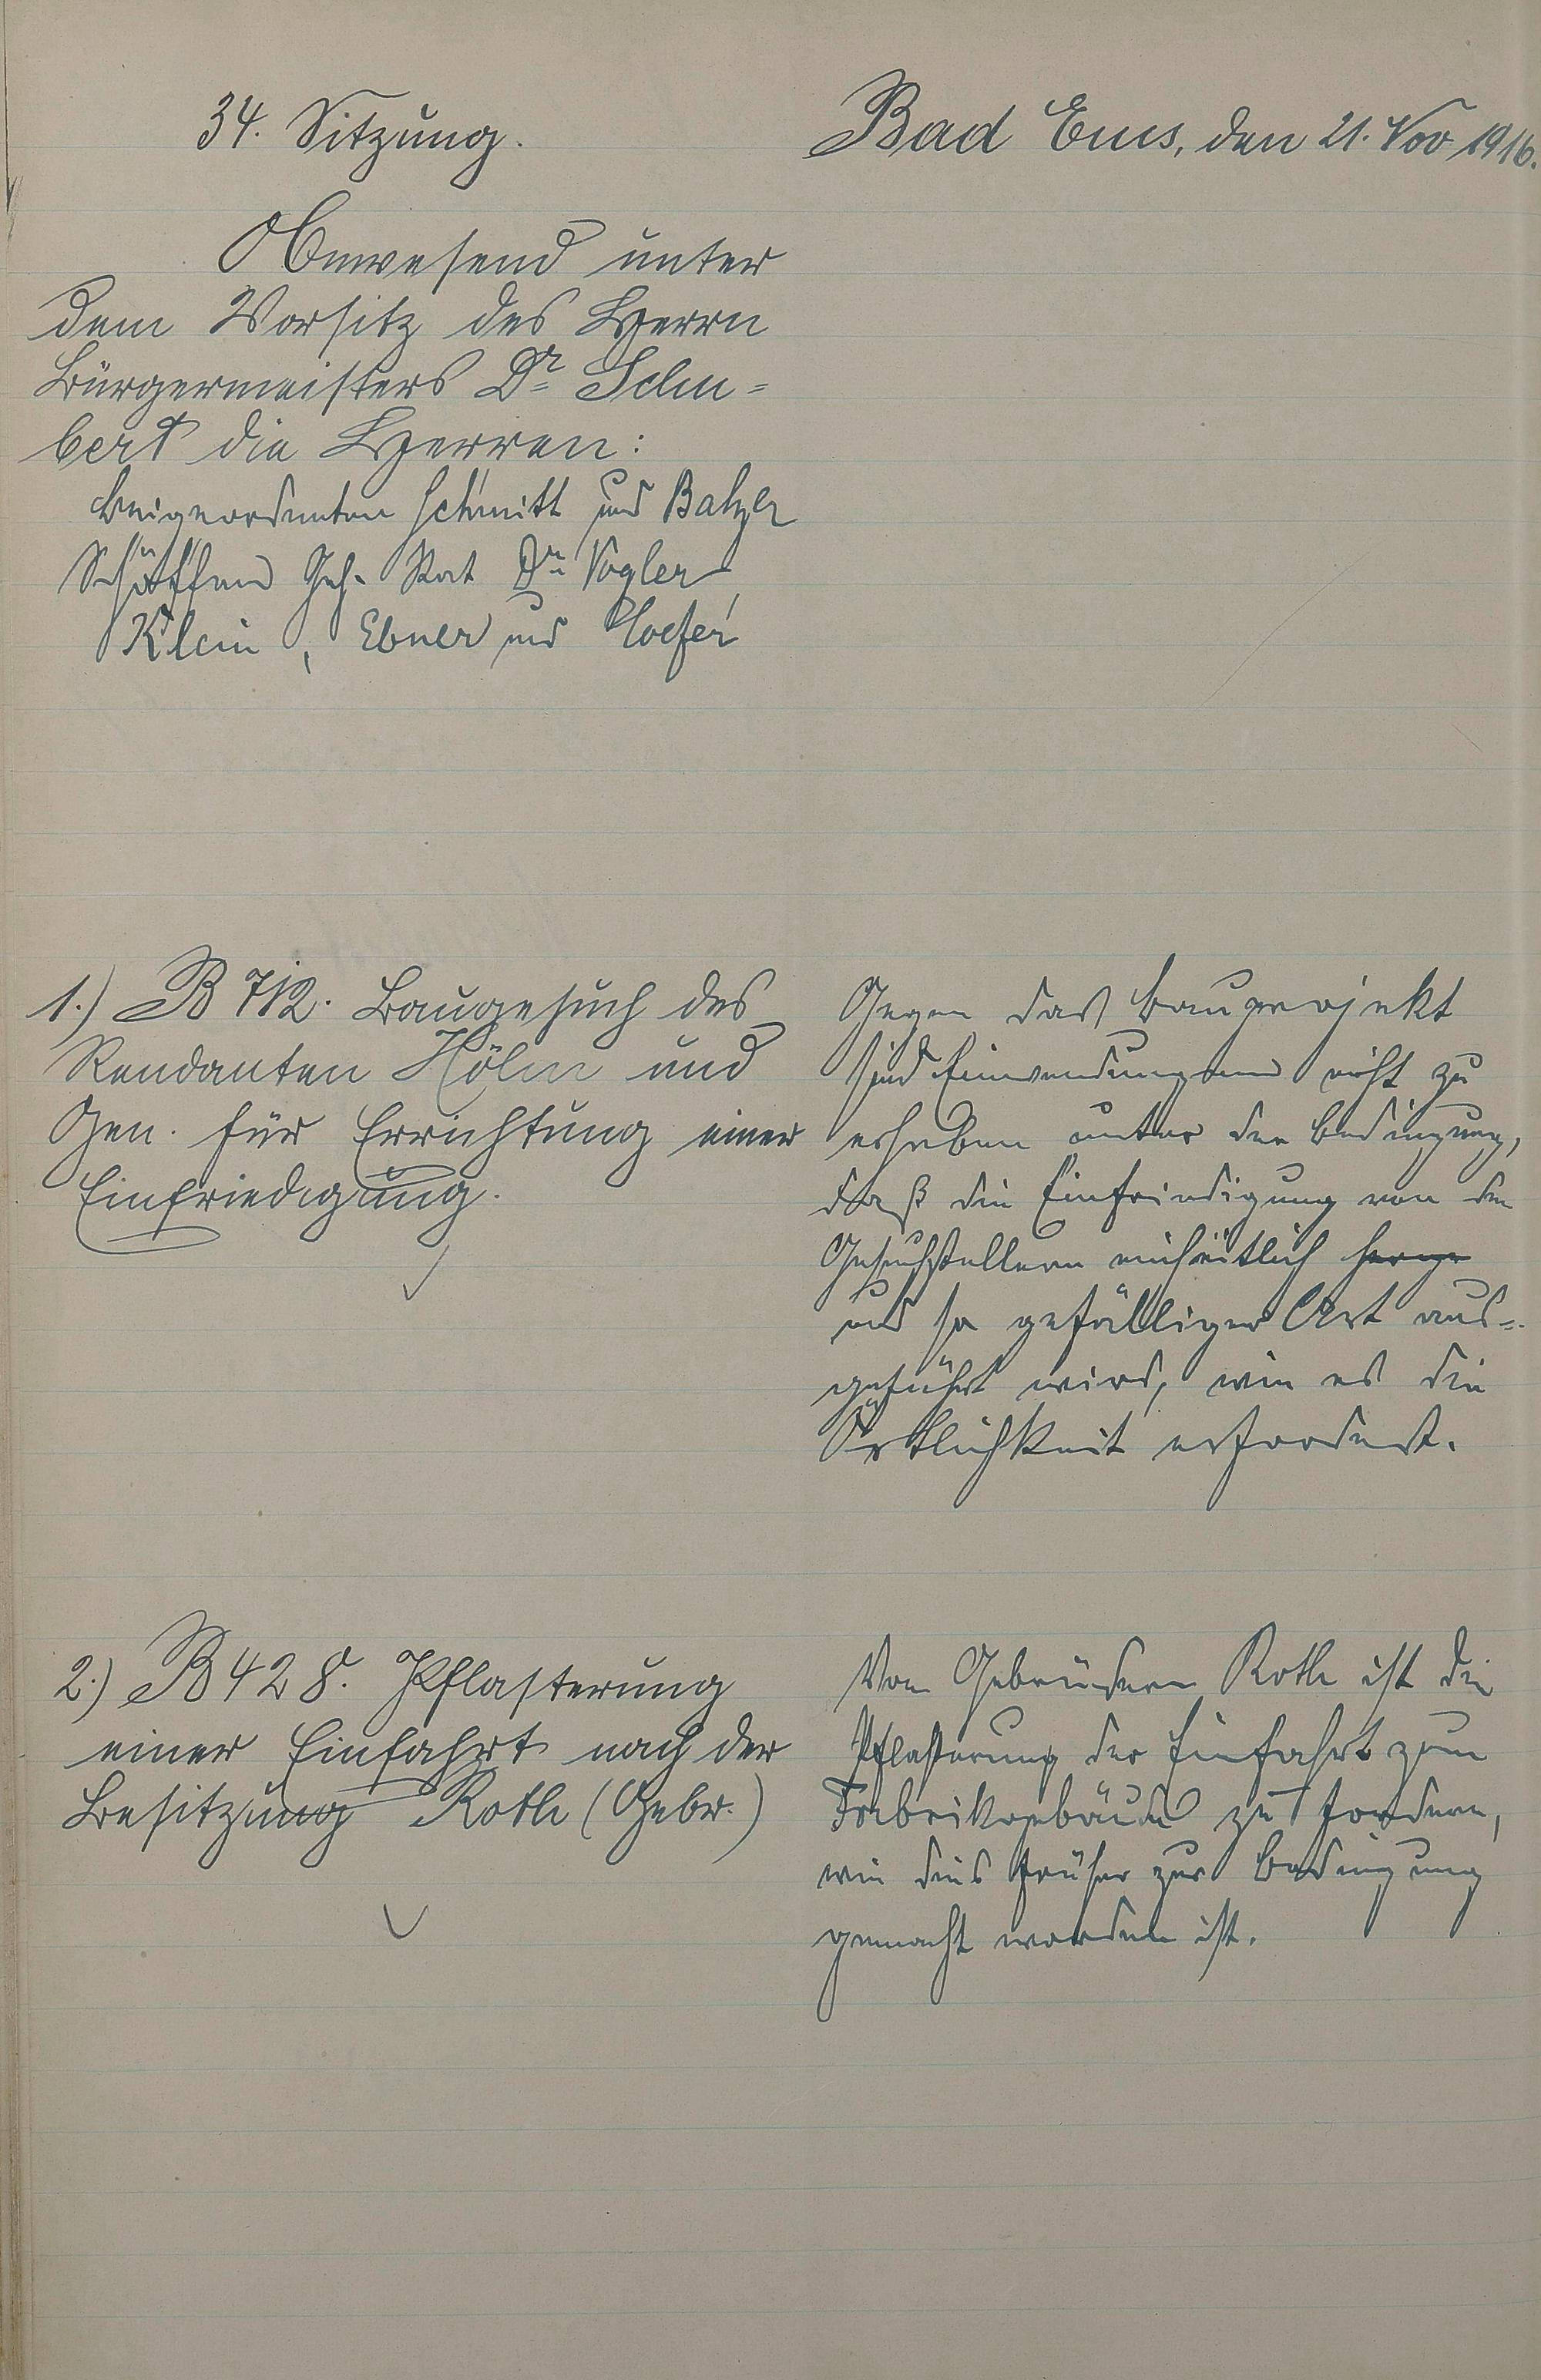 34. Sitzung.
Bad Ems, den 21. Nov 1916.
Anwesend unter
dem Vorsitz des Herrn
Bürgermeisters Dr. Schu=
bert die Herren:
Beigeordneten Schmitt und Balzer
Schöffen Geh. Rat Dr. Vogler,
Klein, Ebner und
1.) B 712. Baugesuch des
Rendanten Höhn und
Gen. für Errichtung einer
Einfriedigung.
Gegen das Bauprojekt
sind Einwendungen nicht zu
erheben unter der Bedingung,
daß die Einfriedigung von den
Gesuchstellern einheitlich herge
und so gefälliger Art aus=
geführt wird, wie es die
Örtlichkeit erfordert.
2.) B 428. Pflasterung
einer Einfahrt nach der
Besitzung Roth (Gebr.)
Von Gebrüdern Roth ist die
Pflasterung der Einfahrt zum
Fabrikgebäude zu fordern,
wie dies früher zur Bedingung
gemacht worden ist.